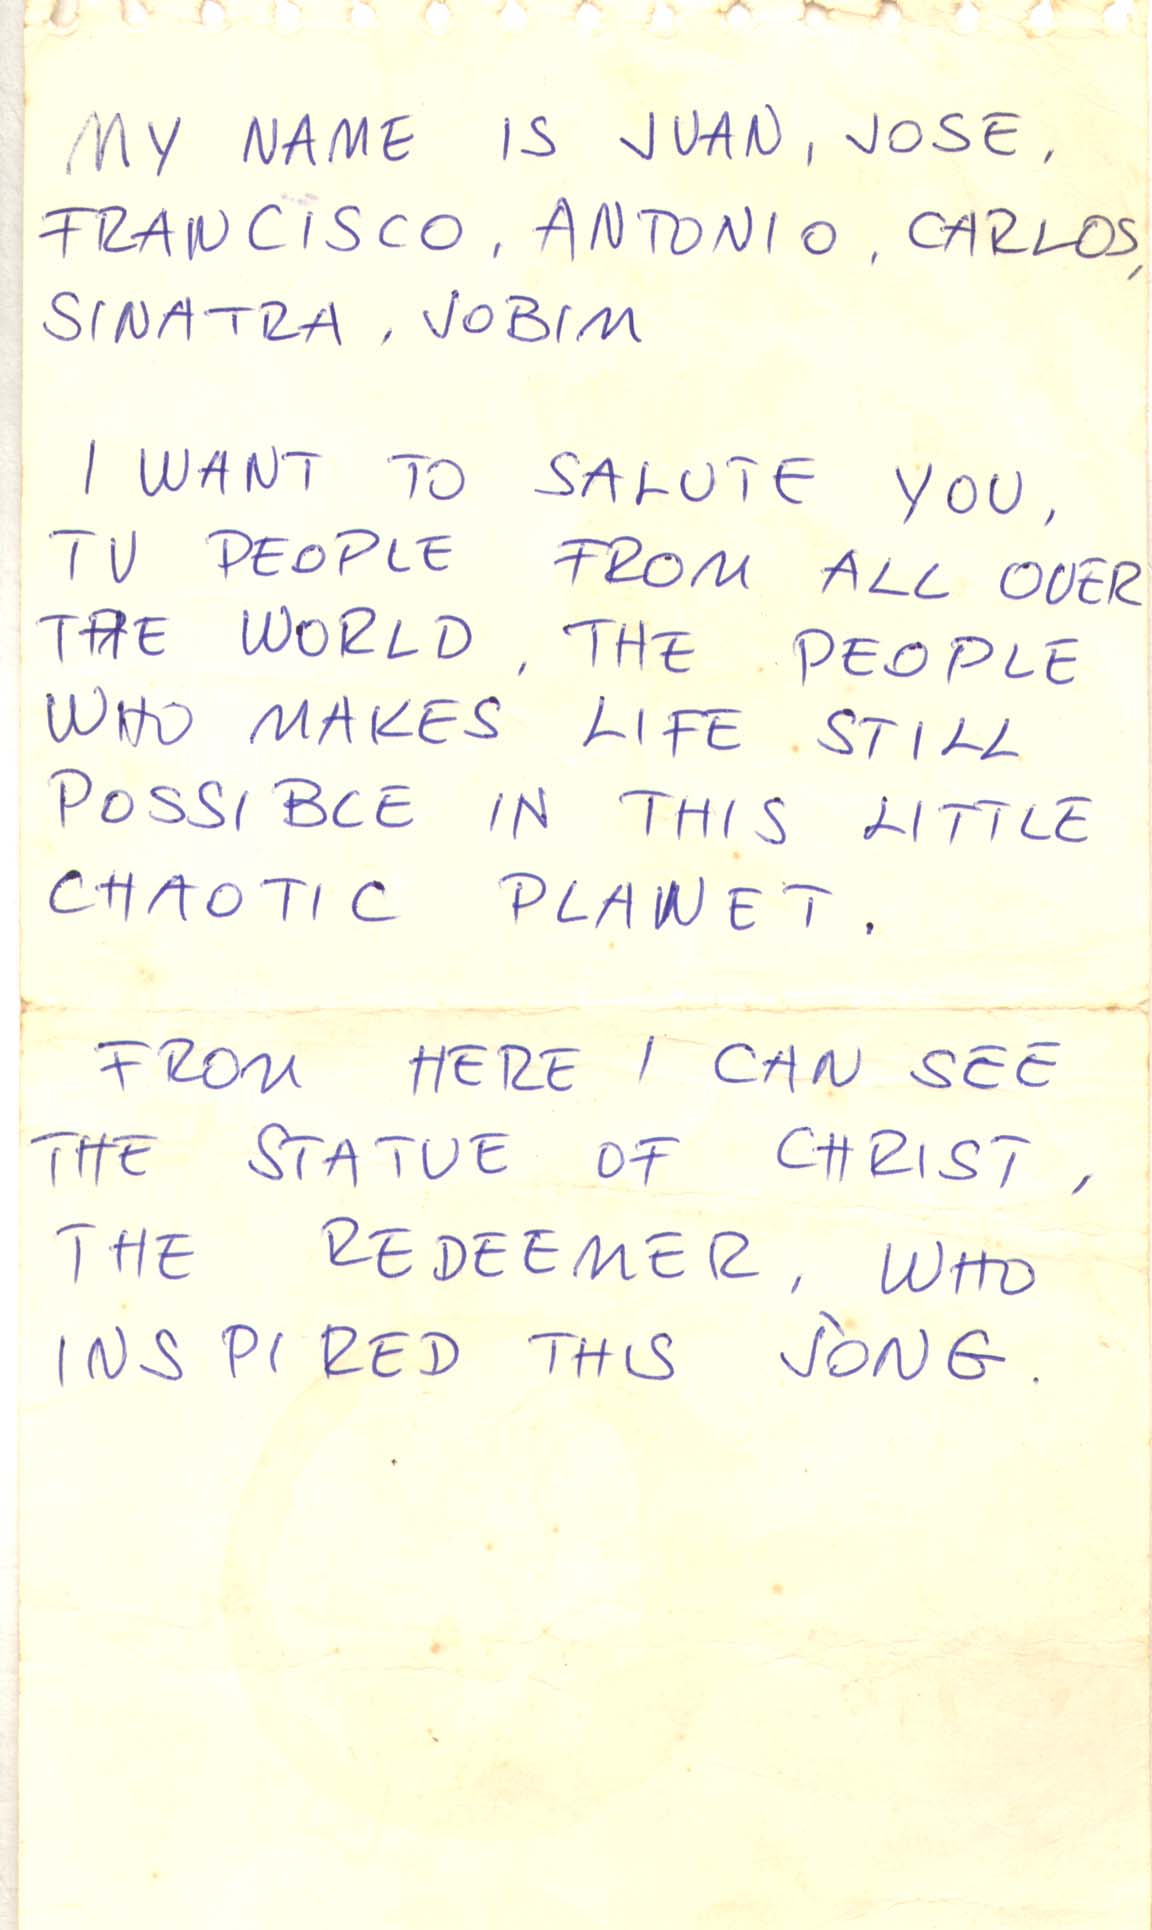 MY NAME IS JUAN, JOSE,
FRANCISCO, ANTONIO, CARLOS,
SINATRA, JOBIM
I WANT TO SALUTE YOU,
TV PEOPLE FROM ALL OVER
THE WORLD, THE PEOPLE
WHO MAKES LIFE STILL
POSSIBLE IN THIS LITTLE
CHAOTIC PLANET.
FROM HERE I CAN SEE
THE STATUE OF CHRIST,
THE REDEEMER, WHO
INSPIRED THIS SONG.